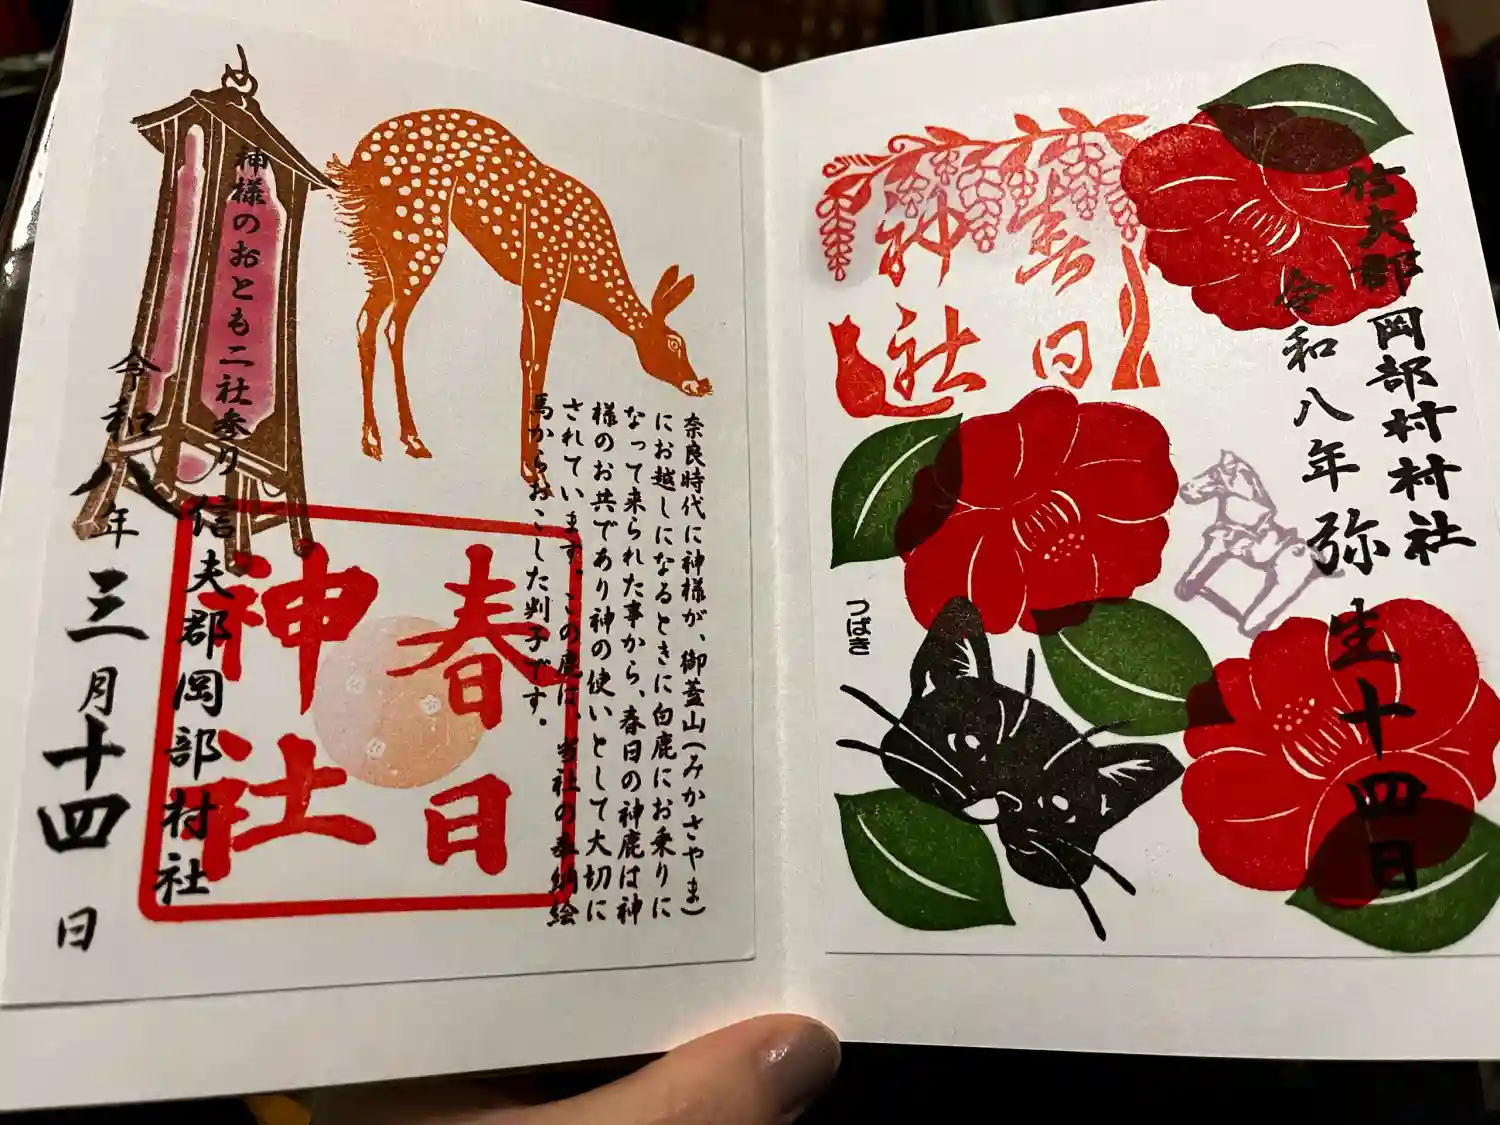 奈良時代に神様が、御蓋山(みかさやま)
にお越しになるときに白鹿にお乗りに
なって来られた事から、春日の神鹿は神
様のお共であり神の使いとして大切に
されています。この鹿は、当社の奉納絵
馬からおこした判子です。
春日
神社
神様のおとも二社参り
信夫郡岡部村村社
令和八年三月十四日
信夫郡岡部村村社
令和八年弥生十四日
春日
神社
つばき